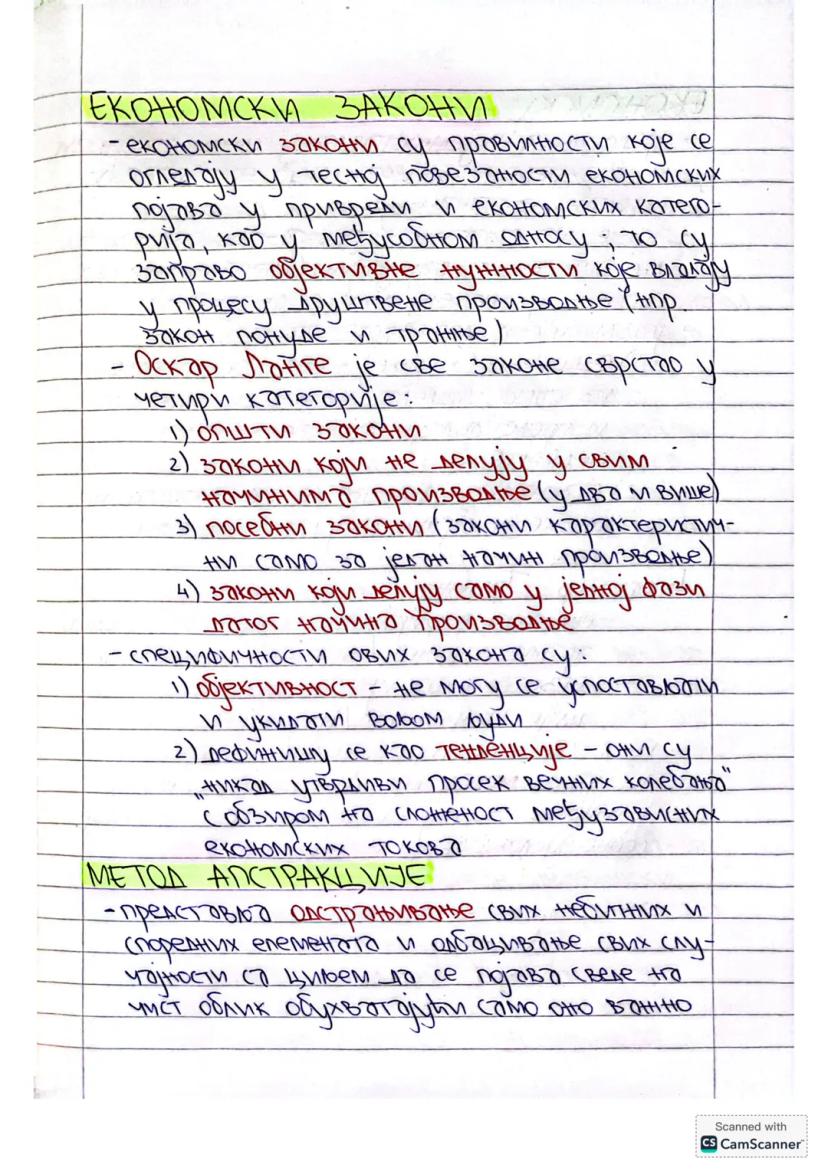 ЕКОНОМСКИ ЗАКОНИ
- економски закони су правилности које се
огледају у тесној повезаности економских
појава у привреди и економских катего-
рија, као у међусобном односу, то су
заправо објективне нужности које владају
у процесу друштвене производње (нпр.
закон понуде и тражње)
- Оскар Ланге је све законе сврстао у
четири категорије:
1) општи закони
2) закони који не делују у свим
начинима производње (у два и више)
3) посебни закони (закони карактеристич-
ни само за један начин производње)
4) закони који делују само у једној фази
датог начина производње
- специфичности ових закона су:
1) објективност - не могу се успостављати
и укидати вољом људи
2) дефинишу се као тенденције - они су
„никад утврдиви просек вечних колебања"
с обзиром на сложеност међузависних
економских токова
МЕТОД АПСТРАКЦИЈЕ
- представља одстрањивање свих небитних и
споредних елемената и одбацивање свих слу-
чајности са циљем да се појава сведе на
чист облик обухватајући само оно важно
Scanned with
CS CamScanner